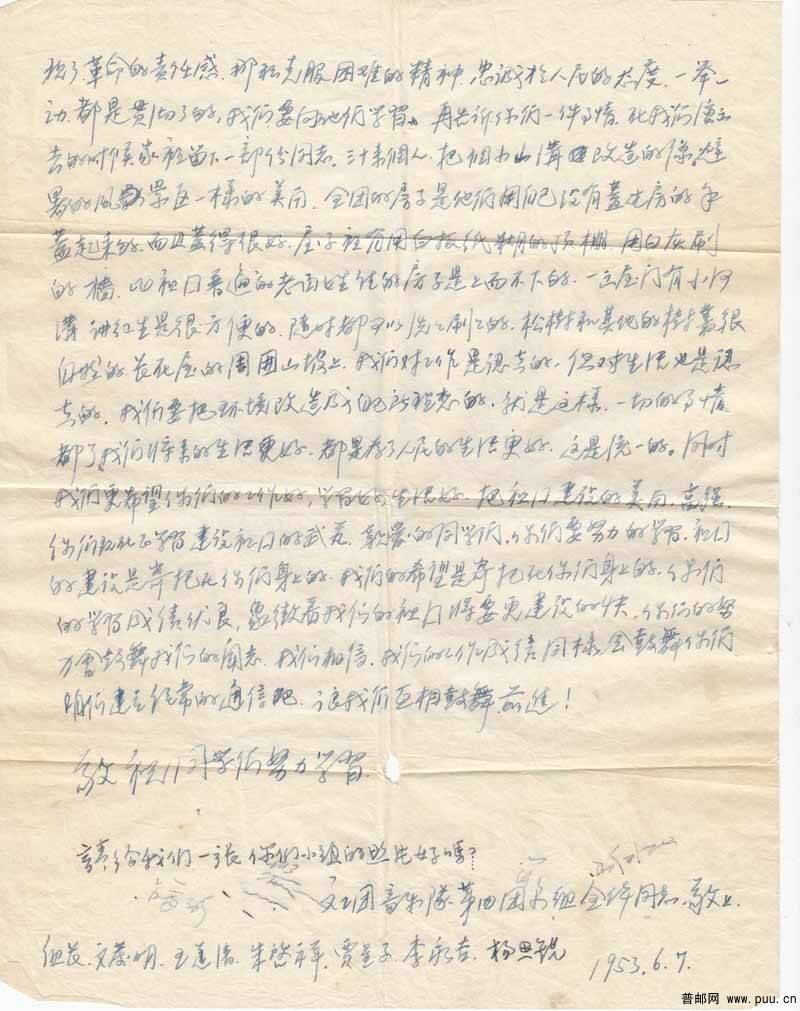 现了革命的责任感.那种克服困难的精神.忠诚于人民的态度.一举一
动.都是贯彻了的,我们要向他们学习。再告诉你们一件事情.在我们演出
去的时候家里留下一部份同志.三十来个人.把个小山溝改造的像
的风景区一樣的美丽.全团的房子是他们用自己没有蓋过房的手
蓋起来的.而且蓋得很好.屋子里有用白报纸糊的顶棚.用白灰刷
的墙.比祖国普通的老百姓住的房子是上而不下的.一出屋门有小河
溝讲衛生是很方便的.随时都可以洗洗刷刷的.松樹和其他的樹
自然的长在屋的周围山坡上.我们对工作是認真的.但对生活也是認
真的.我们要把环境改造成自己所理想的.就是这樣.一切的事情
都为了我们将来的生活更好.都是为了人民的生活更好.这是统一的。同时
我们更希望你们的工作好,学習好,生活好.把祖国建设的美丽.富强.
你们现在正学習建设祖国的武器.亲爱的同学们,你们要努力的学習.祖国
的建设是寄托在你们身上的.我们的希望是寄托在你们身上的.你们
的学習成绩优良,象徵着我们的祖国将要更建设的快.你们的努
力會鼓舞我们的闘志.我们相信.我们的工作成绩同樣會鼓舞你们
咱们建立经常的通信吧.让我们互相鼓舞前進!
敬祝同学们努力学習.
請给我们一张你们小组的照片好嗎?
文工团音乐隊第四团小组全体同志敬上.
组长.文茂明.王蓮清.朱啓祥.贾呈子.李永吉.杨思锐
1953.6.7.
普邮网 www.puu.cn